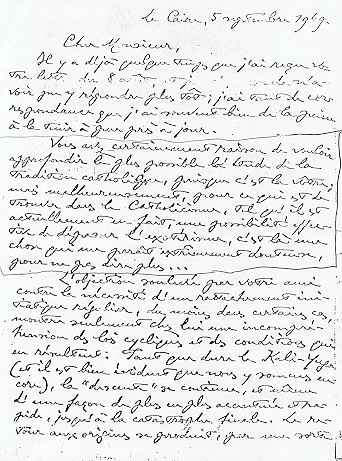 Le Caire, 5 septembre 1949.
Cher Monsieur,
Il y a déjà quelque temps que j'ai reçu vo-
tre lettre du 8 août, et je de n'a-
voir pu y répondre plus tôt ; j'ai tant de cor-
respondance que j'ai souvent bien de la peine
à la tenir à peu près à jour.
Vous avez certainement raison de vouloir
approfondir le plus possible l'étude de la
tradition catholique, puisque c'est la vôtre ;
mais malheureusement, pour ce qui est de
trouver dans le Catholicisme, tel qu'il est
actuellement en fait, une possibilité effec-
tive de dépasser l'exotérisme, c'est là une
chose qui me paraît extrêmement douteuse,
pour ne pas dire plus...
L'objection soulevée par votre ami
contre la nécessité d'un rattachement ini-
tiatique régulier, du moins dans certains cas,
montre seulement chez lui une incompré-
hension des lois cycliques et des conditions qui
en résultent. Tant que dure le Kali-Yuga
(et il est bien évident que nous y sommes en-
core), la "descente" se continue, et même
d'une façon de plus en plus accentuée et ra-
pide, jusqu'à la catastrophe finale. Le re-
tour aux origines se produit, par une sorte